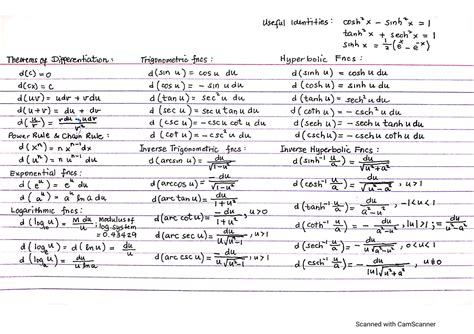 Useful Identities: cosh²x − sinh²x = 1
tanh²x + sech²x = 1
sinh x = ½(eˣ − e⁻ˣ)
Theorems of Differentiation:
d(c) = 0
d(cx) = c
d(uv) = udv + vdu
d(u+v) = du + dv
d(u/v) = (vdu − udv)/v²
Power Rule & Chain Rule:
d(xⁿ) = n xⁿ⁻¹ dx
d(uⁿ) = n uⁿ⁻¹ du
Exponential fncs:
d(eᵘ) = eᵘ du
d(aᵘ) = aᵘ ln a du
Logarithmic fncs:
d(log₁₀ u) = M du/u, Modulus of log system = 0.43429
d(logₑ u) = d(ln u) = du/u
d(logₐ u) = du/(u ln a)
Trigonometric fncs:
d(sin u) = cos u du
d(cos u) = − sin u du
d(tan u) = sec² u du
d(sec u) = sec u tan u du
d(csc u) = −csc u cot u du
d(cot u) = −csc² u du
Inverse Trigonometric fncs:
d(arcsin u) = du/√(1−u²)
d(arccos u) = − du/√(1−u²)
d(arc tan u) = du/(1+u²)
d(arc cot u) = − du/(1+u²), u>0
d(arc sec u) = du/(u√(u²−1)), u>1
d(arc csc u) = − du/(u√(u²−1)), u>1
Hyperbolic Fncs:
d(sinh u) = cosh u du
d(cosh u) = sinh u du
d(tanh u) = sech² u du
d(coth u) = −csch² u du
d(sech u) = − sech u tanh u du
d(csch u) = − csch u coth u du
Inverse Hyperbolic Fnc:
d(sinh⁻¹ u/a) = du/√(u²+a²)
d(cosh⁻¹ u/a) = du/√(u²−a²), u>1
d(tanh⁻¹ u/a) = du/(a²−u²), −1<u<1
d(coth⁻¹ u/a) = − du/(u²−a²), |u|>1; = du/(a²−u²)
d(sech⁻¹ u/a) = − du/(u√(a²−u²)), 0<u<1
d(csch⁻¹ u/a) = − du/(|u|√(u²+a²)), u≠0
Scanned with CamScanner